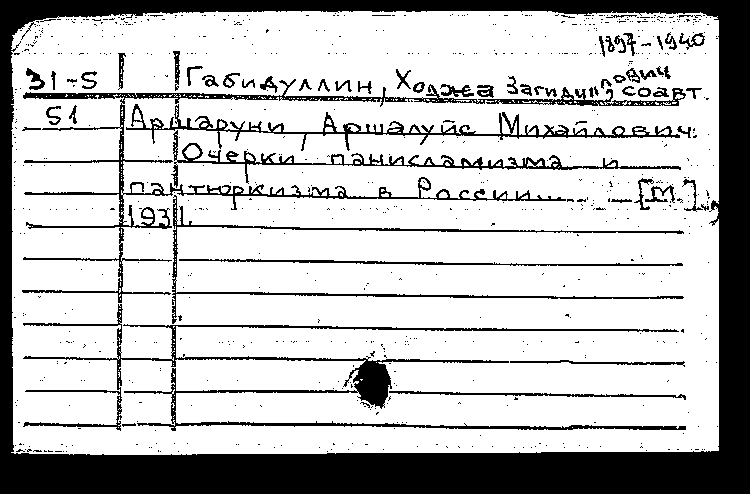 1897-1940
31-5 Габидуллин, Ходжа Загидуллович, соавт.
51 Аршаруни, Аршалуйс Михайлович.
Очерки панисламизма и
пантюркизма в России... [М],
1931.